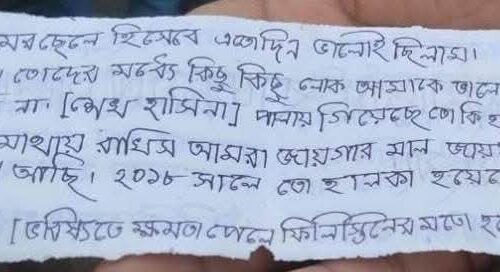 মরছেলে হিসেবে এতোদিন ভালোই ছিলাম।
তোদের মর্ধ্যে কিছু কিছু লোক আমাকে ভালো
না. [শেখ হাসিনা] পালায় গিয়েছে তো কি হ
মাথায় রাখিস আমরা জায়গার মাল জায়
আছি। ২০১৮ সালে তো হালকা হয়েছে
[ভবিষ্যিতে ক্ষমতা পেলে ফিলিস্তিনের মতো হ